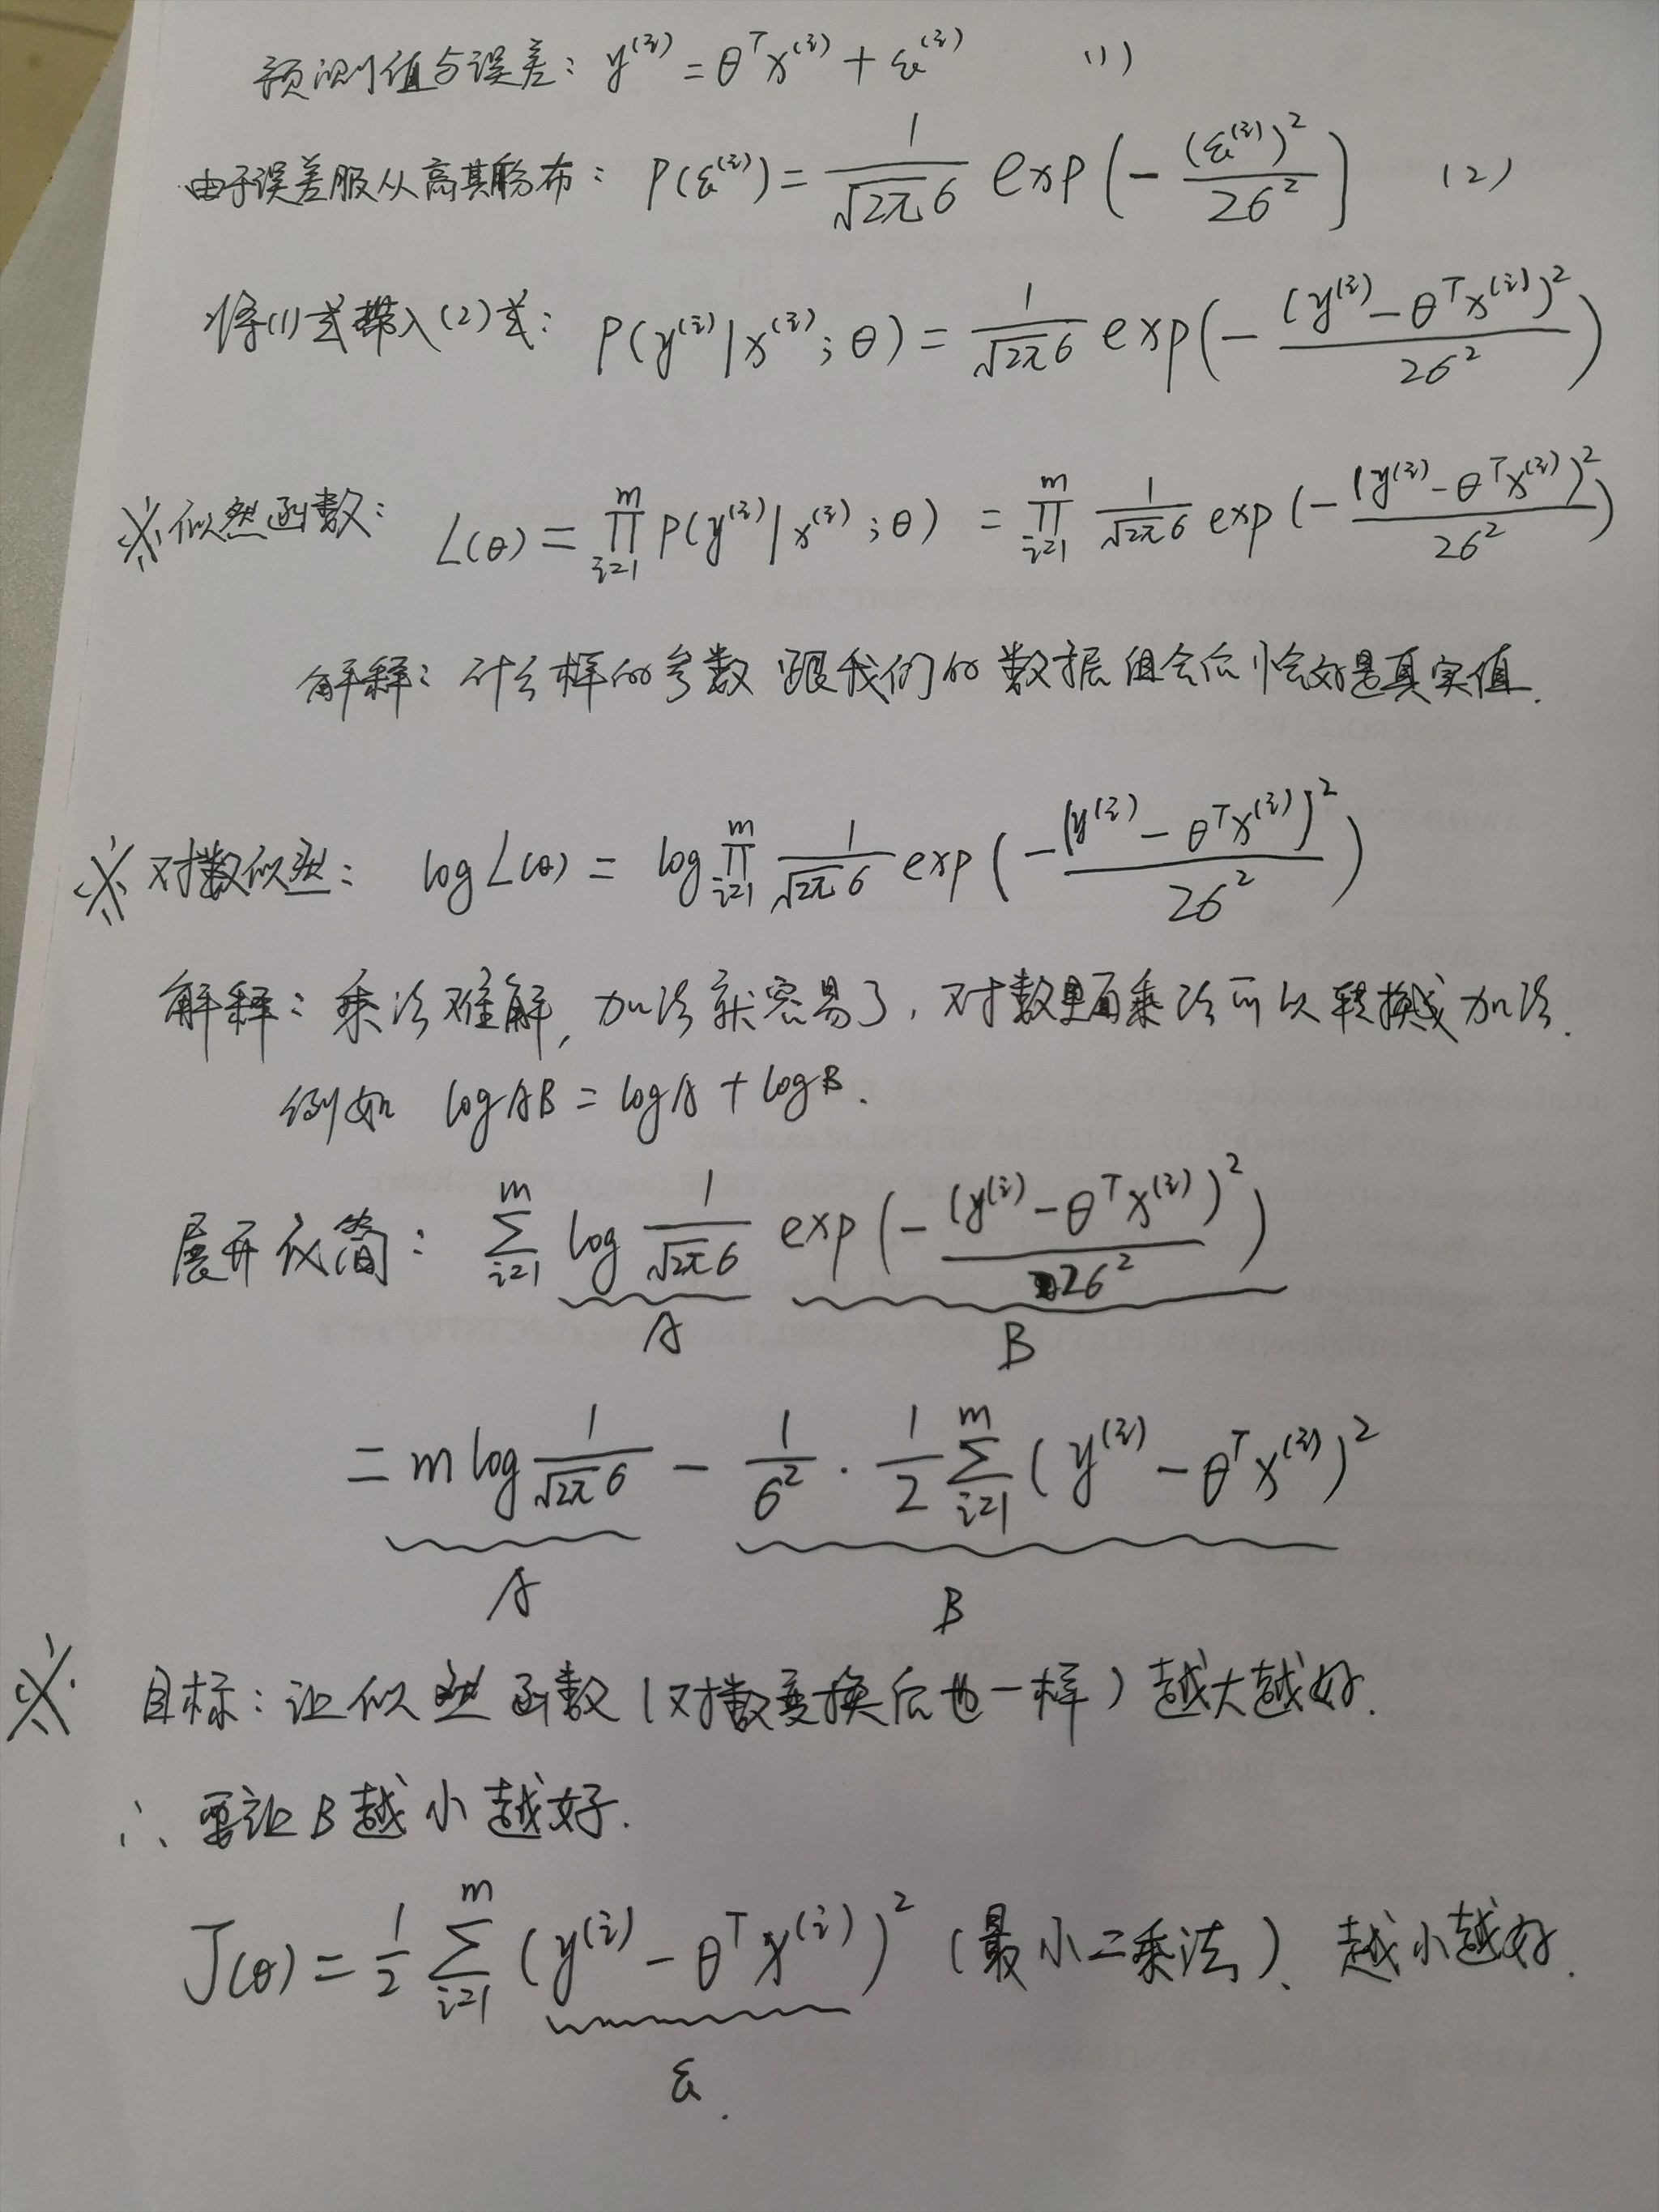 预测值与误差: y⁽ⁱ⁾ = θᵀx⁽ⁱ⁾ + ε⁽ⁱ⁾ (1)
由于误差服从高斯分布: P(ε⁽ⁱ⁾) = \frac{1}{\sqrt{2π}σ} exp(-\frac{(ε⁽ⁱ⁾)²}{2σ²}) (2)
将(1)式带入(2)式: P(y⁽ⁱ⁾|x⁽ⁱ⁾;θ) = \frac{1}{\sqrt{2π}σ} exp(-\frac{(y⁽ⁱ⁾-θᵀx⁽ⁱ⁾)²}{2σ²})
※似然函数: L(θ) = \prod_{i=1}^{m} P(y⁽ⁱ⁾|x⁽ⁱ⁾;θ) = \prod_{i=1}^{m} \frac{1}{\sqrt{2π}σ} exp(-\frac{(y⁽ⁱ⁾-θᵀx⁽ⁱ⁾)²}{2σ²})
解释: 什么样的参数跟我们的数据组合后恰好是真实值.
※对数似然: log L(θ) = log \prod_{i=1}^{m} \frac{1}{\sqrt{2π}σ} exp(-\frac{(y⁽ⁱ⁾-θᵀx⁽ⁱ⁾)²}{2σ²})
解释: 乘法难解, 加法就容易了, 对数里面乘法可以转换成加法.
例如 logAB = logA + logB.
展开化简: \sum_{i=1}^{m} log \frac{1}{\sqrt{2π}σ} exp(-\frac{(y⁽ⁱ⁾-θᵀx⁽ⁱ⁾)²}{2σ²})
A B
= m log \frac{1}{\sqrt{2π}σ} - \frac{1}{σ²} · \frac{1}{2} \sum_{i=1}^{m} (y⁽ⁱ⁾-θᵀx⁽ⁱ⁾)²
A B
※ 目标: 让似然函数(对数变换后也一样)越大越好.
∴ 要让B越小越好.
J(θ) = \frac{1}{2} \sum_{i=1}^{m} (y⁽ⁱ⁾-θᵀx⁽ⁱ⁾)² (最小二乘法)、越小越好.
ε.